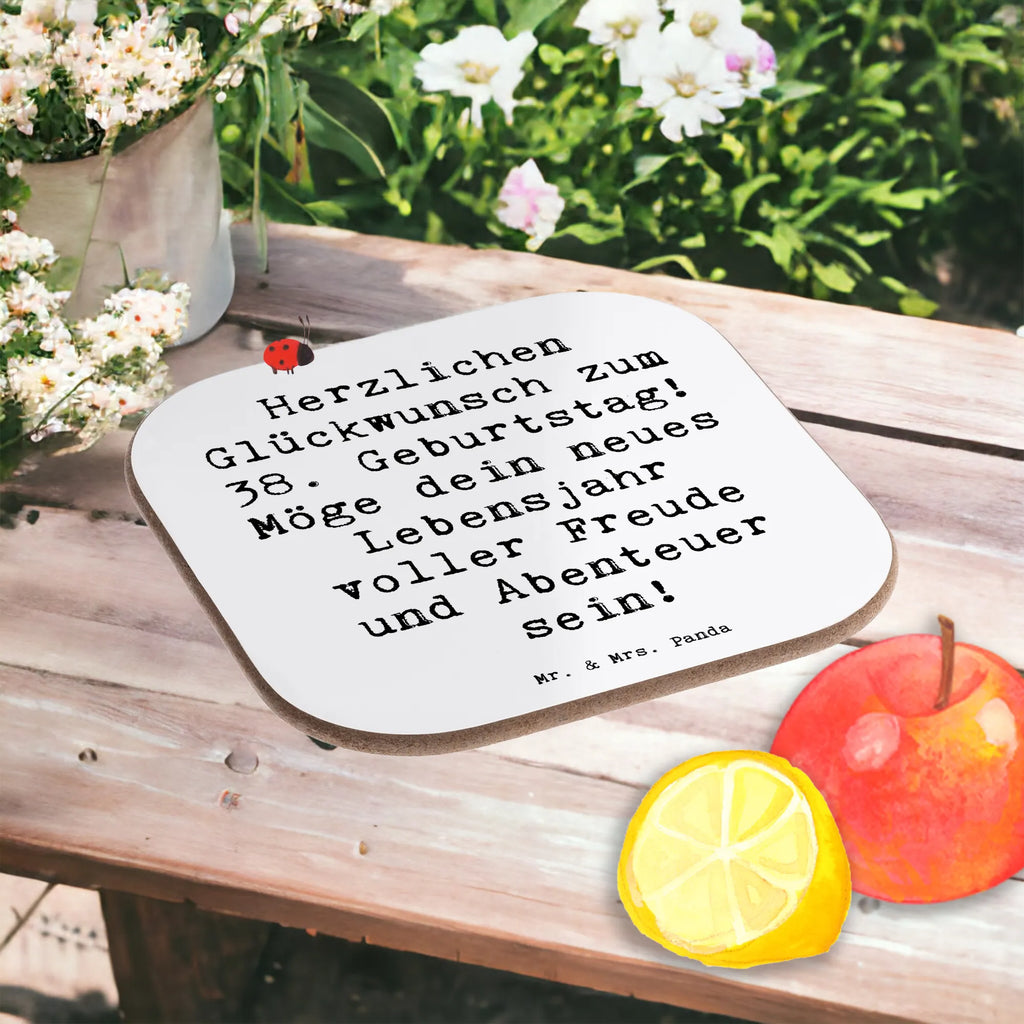 Herzlichen
Glückwunsch zum
38. Geburtstag!
Möge dein neues
Lebensjahr
voller Freude
und Abenteuer
sein!
Mr. & Mrs. Panda